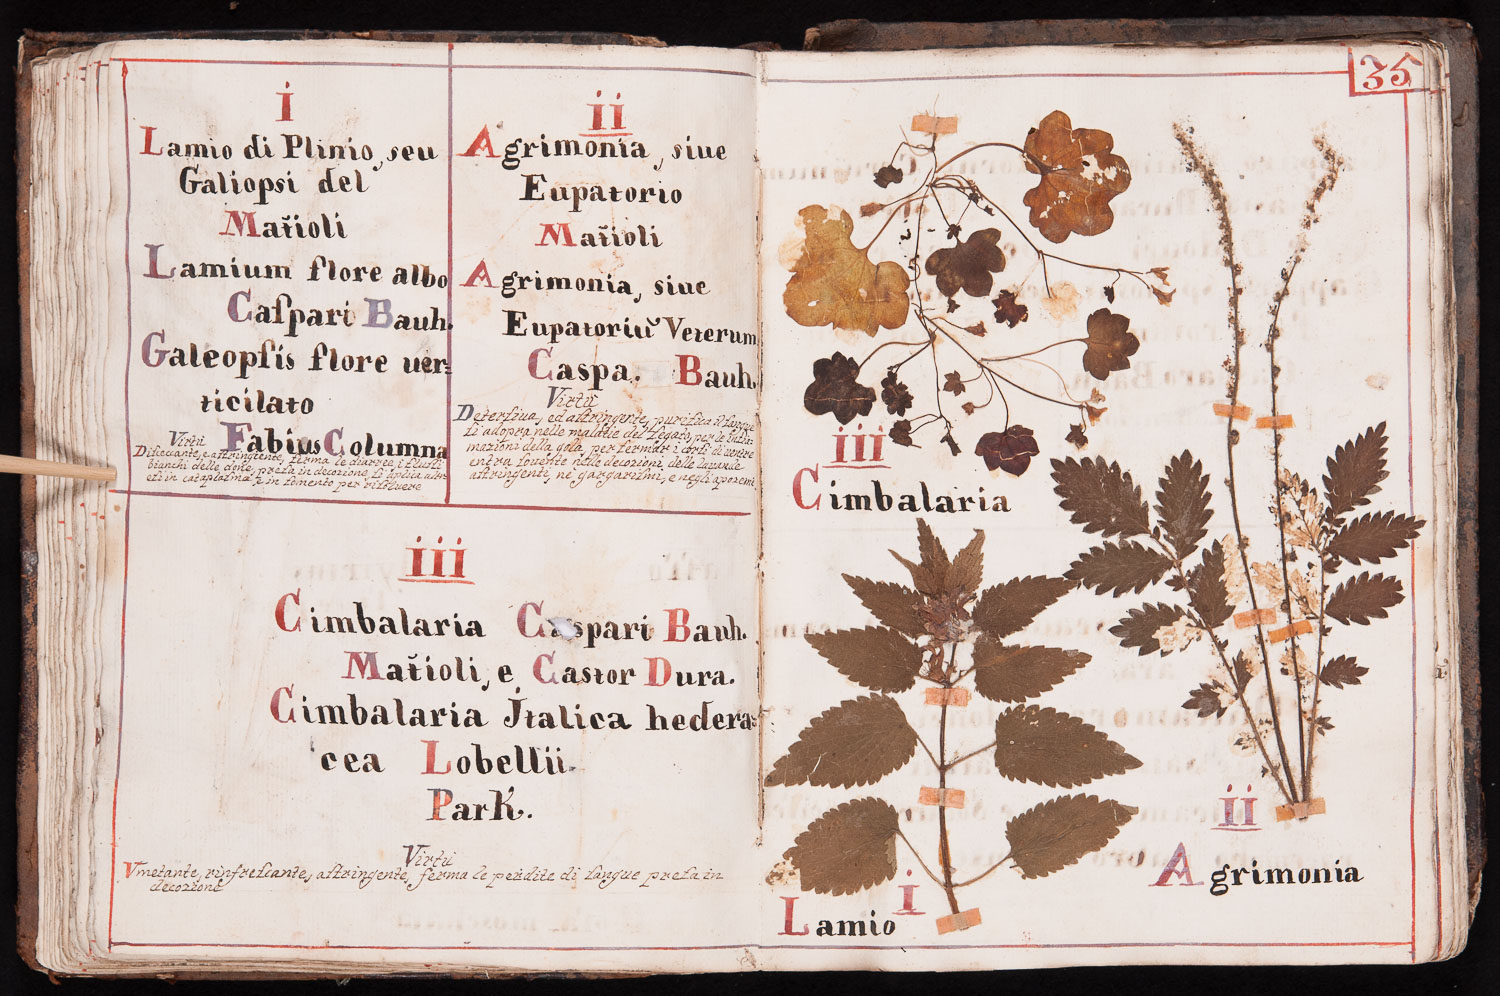 i
Lamio di Plinio, seu
Galiopsi del
Matioli
Lamium flore albo
Caspari Bauh.
Galeopsis flore uer=
ticilato
Fabius Columna
Virtù
Disiccante, e astringente, ferma le diarree, i flussi
bianchi delle done, presa in decozione, si aplica altr=
esi in cataplasma, e in fomento per risoluere
ii
Agrimonia, siue
Eupatorio
Matioli
Agrimonia, siue
Eupatoriũ Veterum
Caspa. Bauh.
Virtù
Detersiua, ed astringente, purifica il sangue
si adopra nelle malatie del fegato, per le infia=
mazioni della gola, per fermar i corsi di uentre
entra souente nelle decozioni, delle lauande
astringenti, ne gargarismi, e negli apozemi
iii
Cimbalaria Caspari Bauh.
Matioli, e Castor Dura.
Cimbalaria Italica hedera=
cea Lobellii.
Park.
Virtù
Vmetante, rinfrescante, astringente, ferma le perdite di sangue presa in
decozione
35
iii
Cimbalaria
i
Lamio
ii
Agrimonia